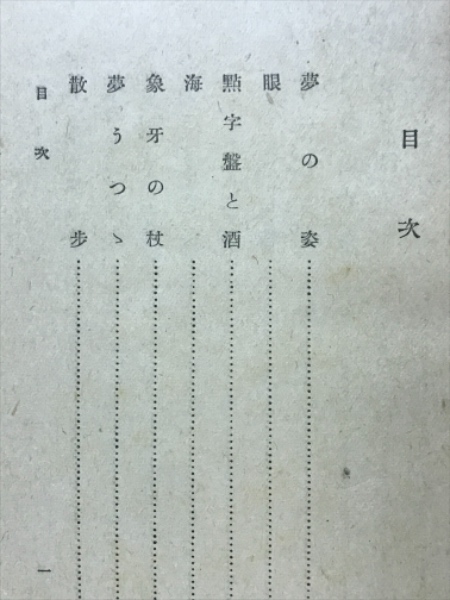 目次
夢の姿
眼
點字盤と酒
海
象牙の杖
夢うつゝ
散步
目次
一